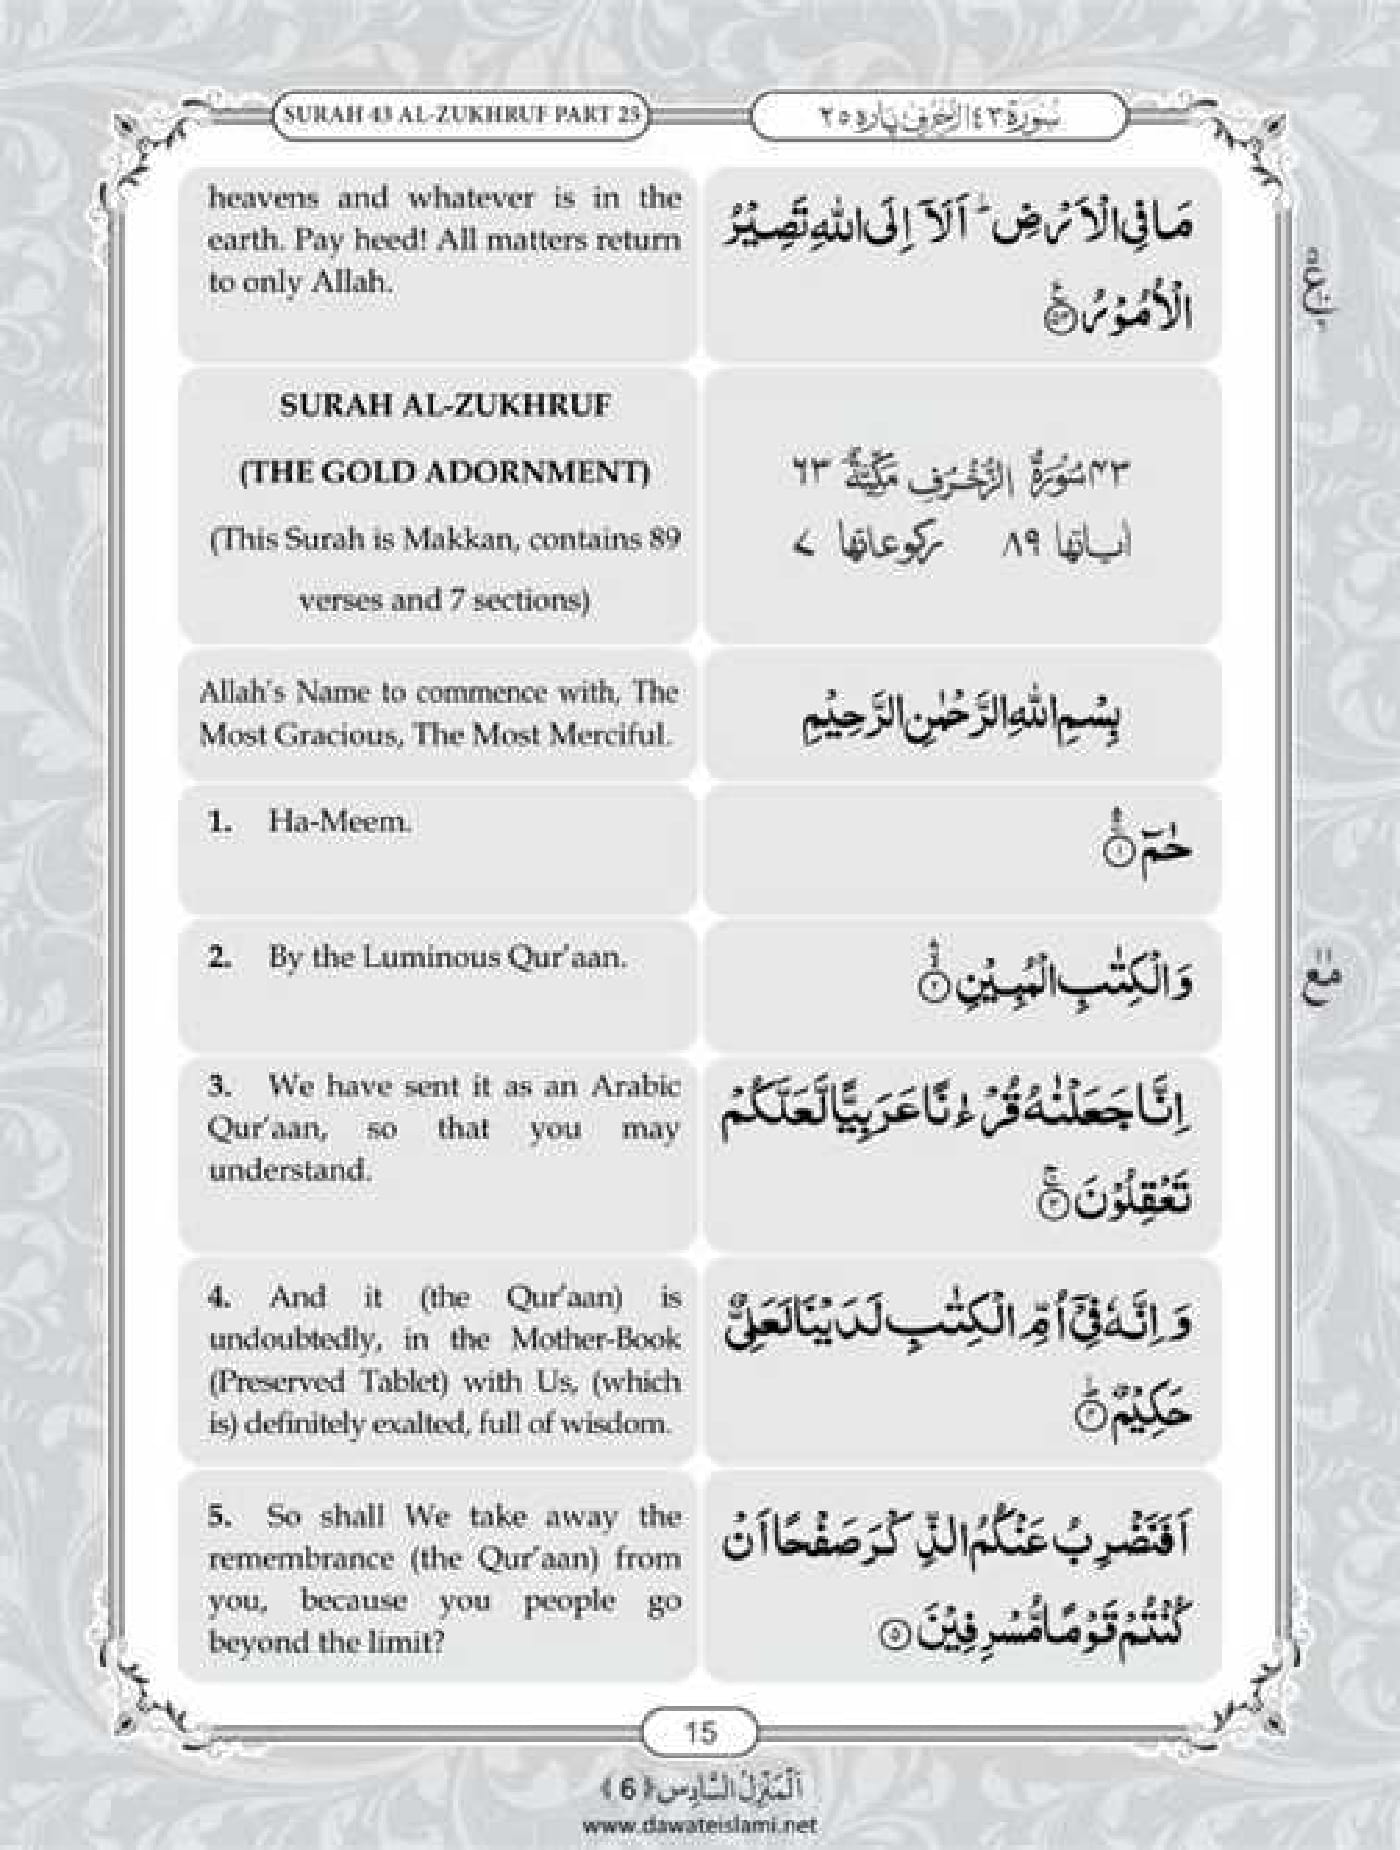 SURAH 43 AL-ZUKHRUF PART 25
سُوْرَة ٤٣ الزُّخْرُف پارہ ٢٥
heavens and whatever is in the
earth. Pay heed! All matters return
to only Allah.
مَا فِی الْاَرْضِ ؕ اَلَاۤ اِلَی اللّٰهِ تَصِیْرُ
الْاُمُوْرُ ۠﴿۵۳﴾
SURAH AL-ZUKHRUF
(THE GOLD ADORNMENT)
(This Surah is Makkan, contains 89
verses and 7 sections)
۴۳ سُوْرَةُ الزُّخْرُفِ مَكِّیَّةٌ ۶۳
اٰیاتها ۸۹ رکوعاتها ۷
Allah's Name to commence with, The
Most Gracious, The Most Merciful.
بِسْمِ اللّٰهِ الرَّحْمٰنِ الرَّحِیْمِ
1. Ha-Meem.
حٰمٓ ۚۛ﴿۱﴾
2. By the Luminous Qur'aan.
وَ الْكِتٰبِ الْمُبِیْنِ ۙۛ﴿۲﴾
3. We have sent it as an Arabic
Qur'aan, so that you may
understand.
اِنَّا جَعَلْنٰهُ قُرْءٰنًا عَرَبِیًّا لَّعَلَّكُمْ
تَعْقِلُوْنَ ۚ﴿۳﴾
4. And it (the Qur'aan) is
undoubtedly, in the Mother-Book
(Preserved Tablet) with Us, (which
is) definitely exalted, full of wisdom.
وَ اِنَّهٗ فِیْۤ اُمِّ الْكِتٰبِ لَدَیْنَا لَعَلِیٌّ
حَكِیْمٌ ؕ﴿۴﴾
5. So shall We take away the
remembrance (the Qur'aan) from
you, because you people go
beyond the limit?
اَفَنَضْرِبُ عَنْكُمُ الذِّكْرَ صَفْحًا اَنْ
كُنْتُمْ قَوْمًا مُّسْرِفِیْنَ ﴿۵﴾
مع
15
اَلْمَنْزِلُ السَّادِس ﴿6﴾
www.dawateislami.net